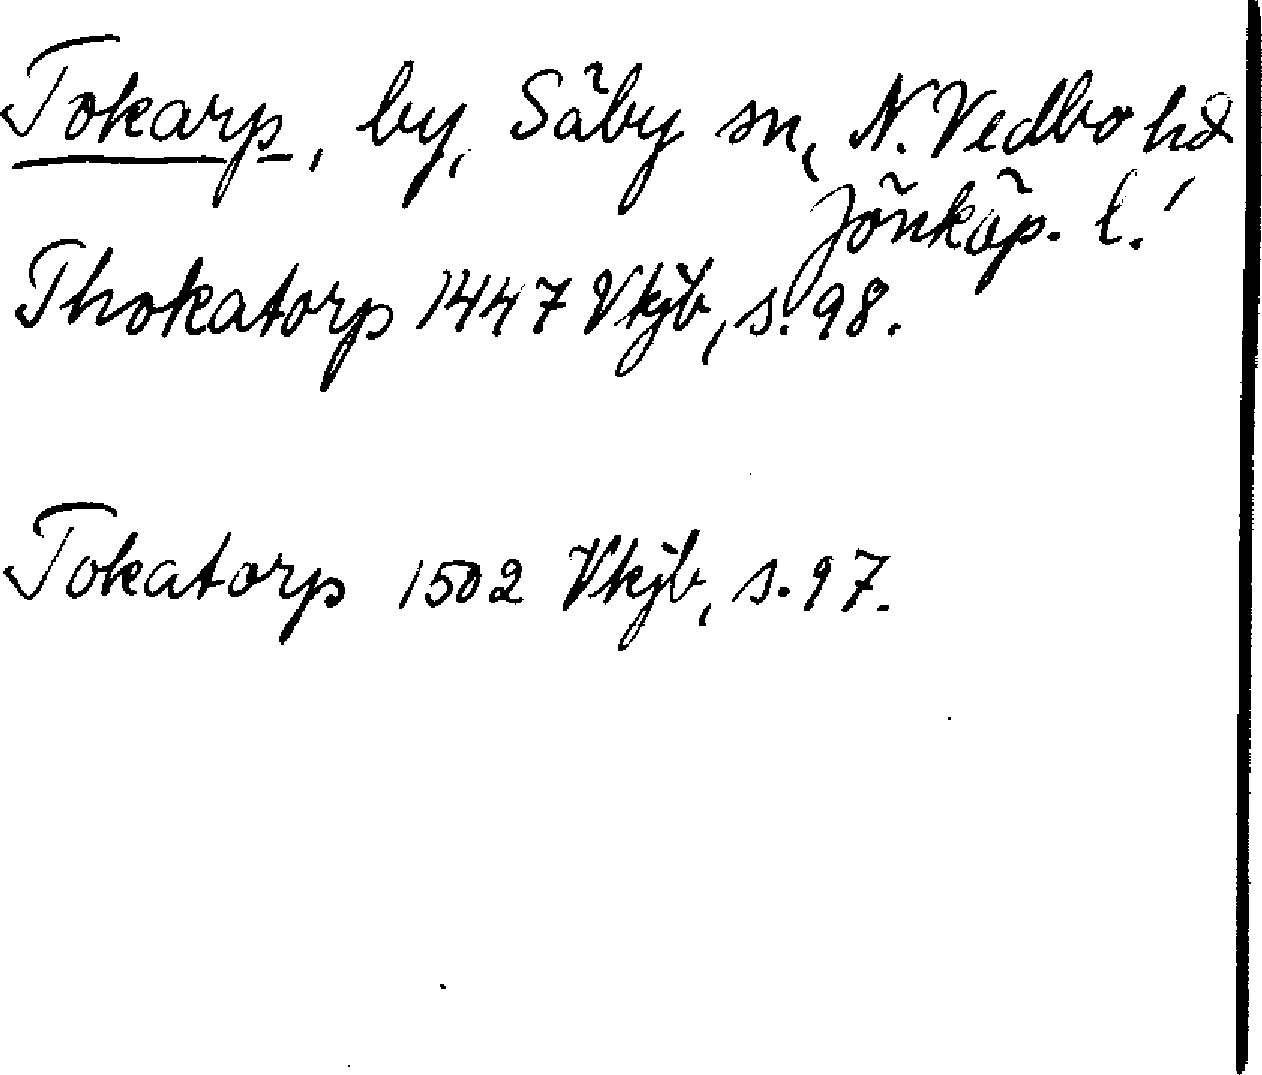 Tokarp, by, Säby sn, N. Vedbo hd,
Jönköp. l.
Thokatorp 1447 Vkjb, s. 98.
Tokatorp 1502 Vkjb, s. 97.